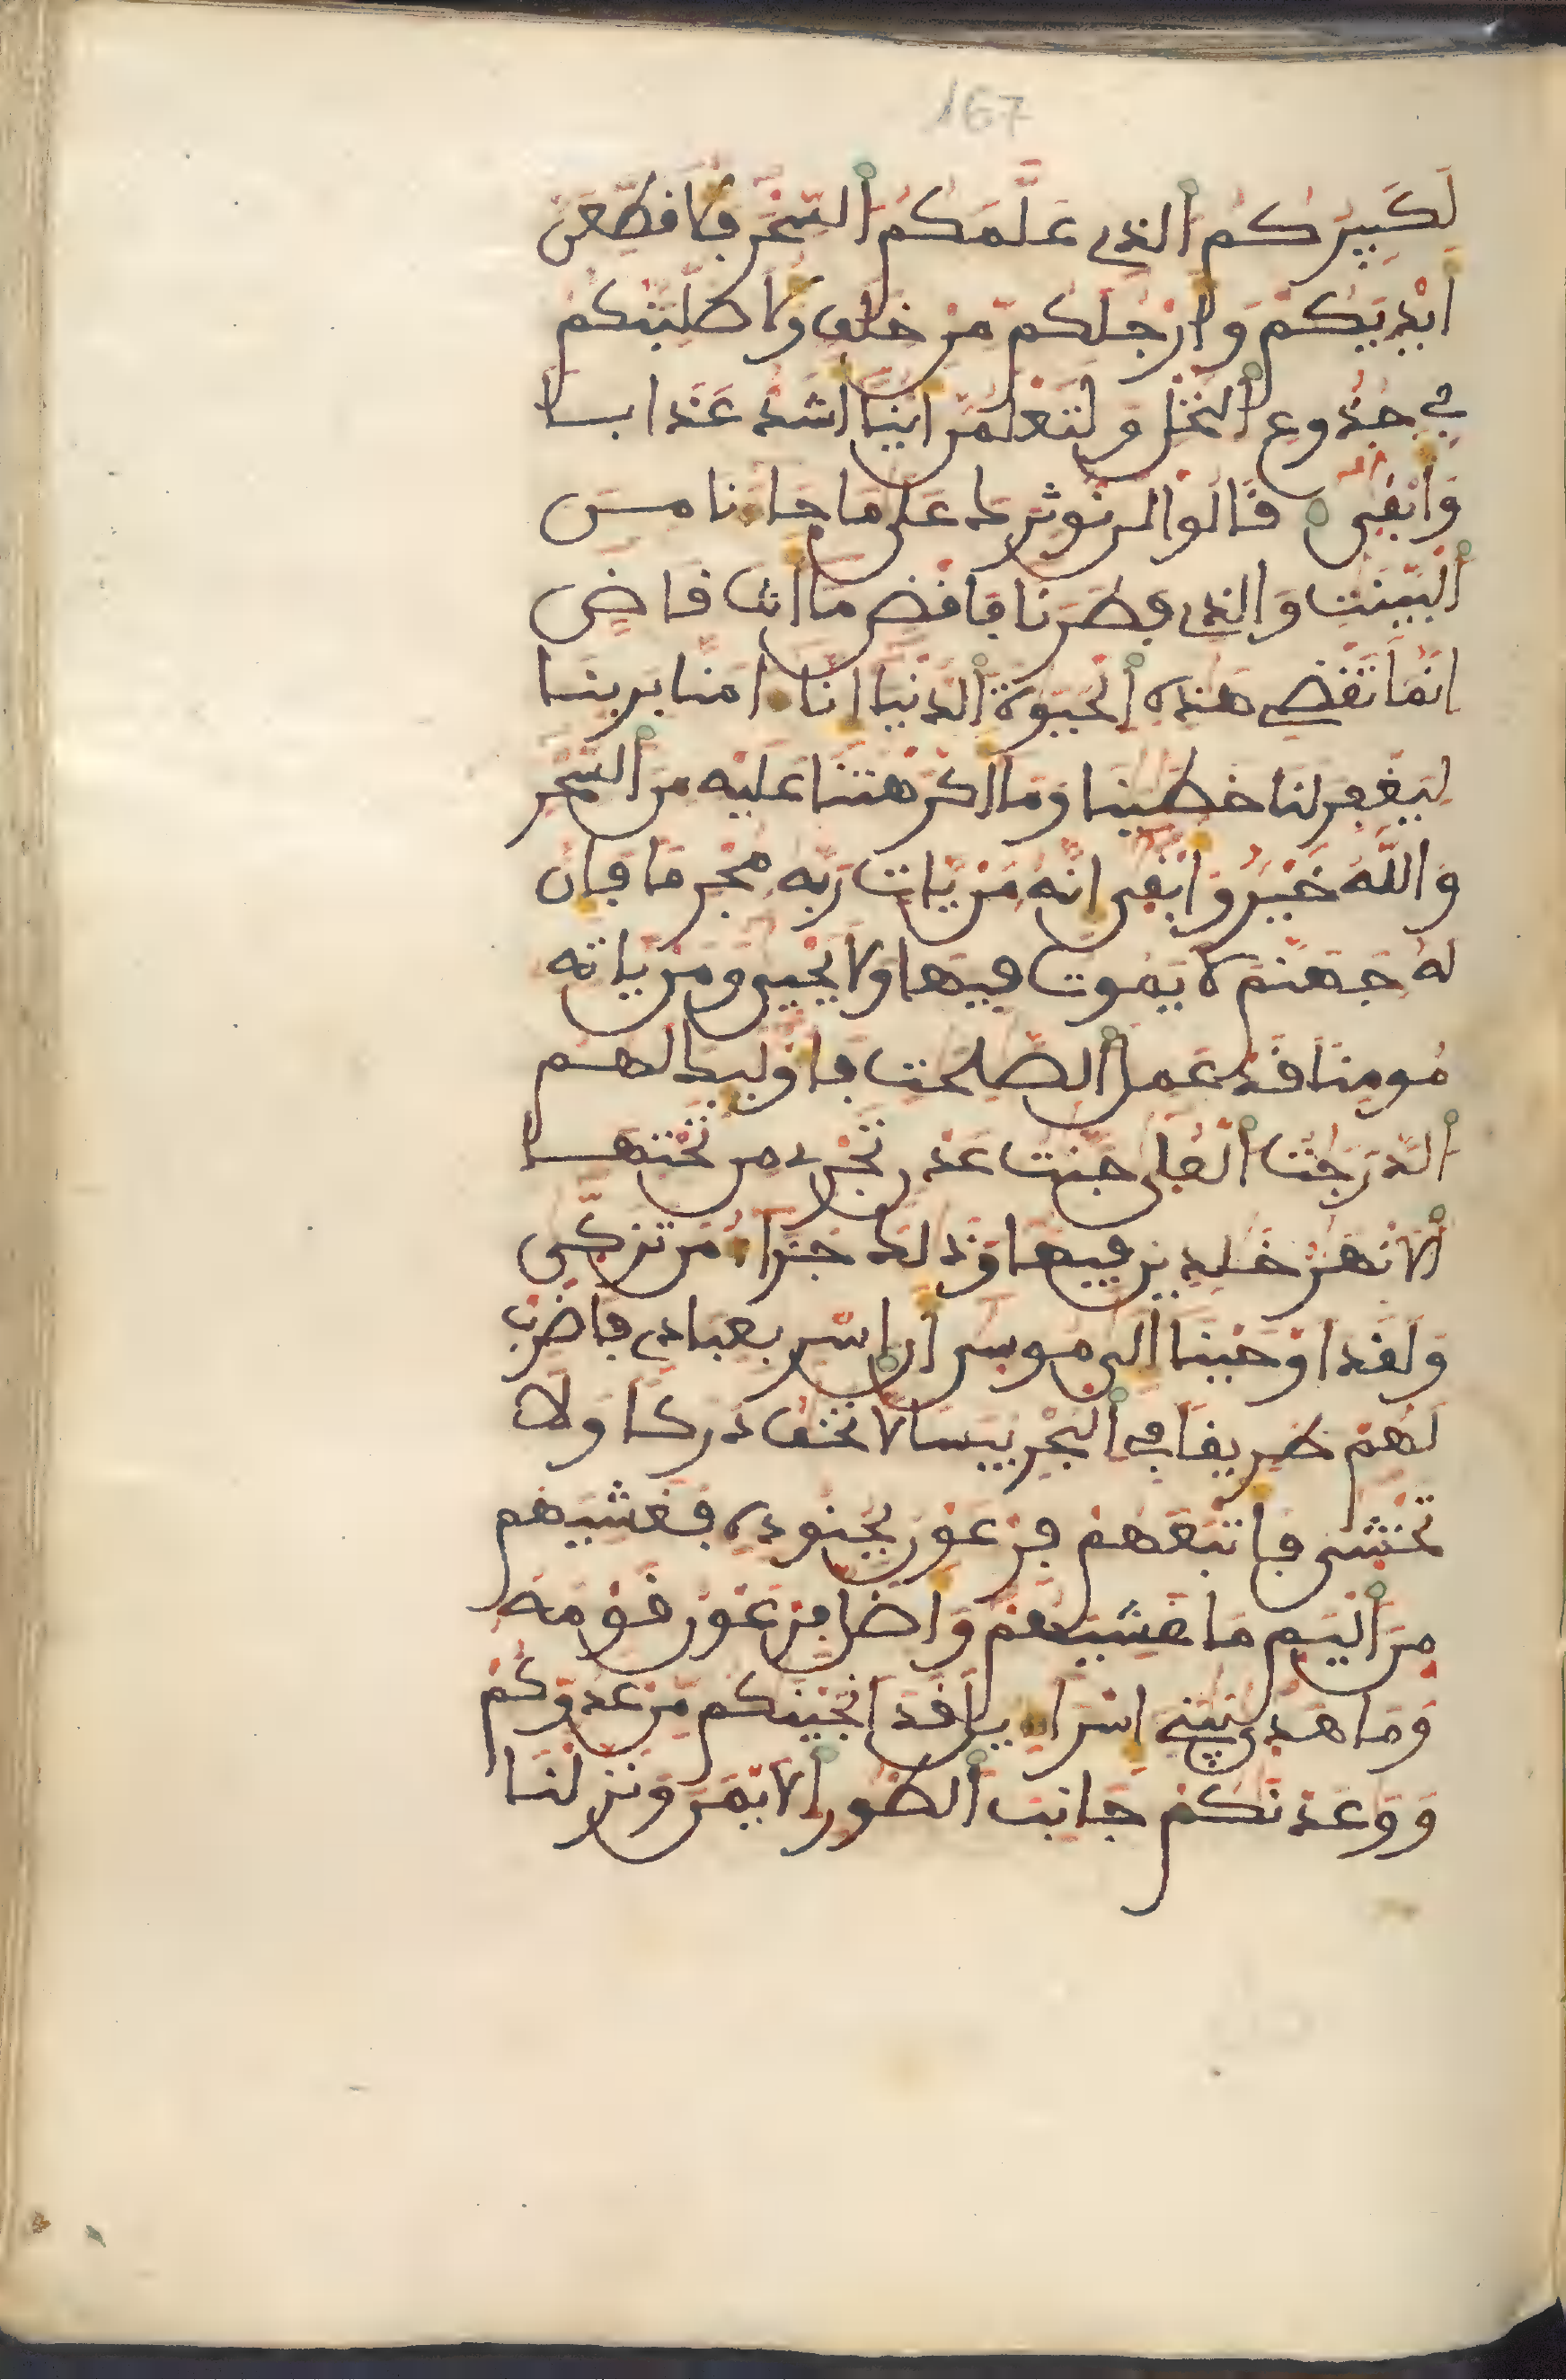 167
لَكَبِيرُكُمُ الذِے عَلَّمَكُمُ السِّحْرَ فَلَأُقَطِّعَنَّ
أَيْدِيَكُمْ وَأَرْجُلَكُم مِّنْ خِلَٰفٖ وَلَأُصَلِّبَنَّكُمْ
فِے جُذُوعِ النَّخْلِ وَلَتَعْلَمُنَّ أَيُّنَا أَشَدُّ عَذَاباٗ
وَأَبْقَىٰ قَالُوا لَن نُّوثِرَكَ عَلَىٰ مَا جَاءَنَا مِنَ
الْبَيِّنَٰتِ وَالذِے فَطَرَنَا فَاقْضِ مَا أَنتَ قَاضٍ
إِنَّمَا تَقْضِے هَٰذِهِ الْحَيَوٰةَ الدُّنْيَا إِنَّا ءَامَنَّا بِرَبِّنَا
لِيَغْفِرَ لَنَا خَطَٰيَٰنَا وَمَا أَكْرَهْتَنَا عَلَيْهِ مِنَ السِّحْرِ
وَاللَّهُ خَيْرٌ وَأَبْقَىٰ إِنَّهُ مَنْ يَّاتِ رَبَّهُ مُجْرِماٗ فَإِنَّ
لَهُ جَهَنَّمَ لَا يَمُوتُ فِيهَا وَلَا يَحْيَىٰ وَمَنْ يَّاتِهِ
مُومِناٗ قَدْ عَمِلَ الصَّٰلِحَٰتِ فَأُوْلَٰئِكَ لَهُمُ
الدَّرَجَٰتُ الْعُلَىٰ جَنَّٰتُ عَدْنٖ تَجْرِے مِن تَحْتِهَا
الْأَنْهَٰرُ خَٰلِدِينَ فِيهَا وَذَٰلِكَ جَزَاءُ مَن تَزَكَّىٰ
وَلَقَدْ أَوْحَيْنَا إِلَىٰ مُوسَىٰ أَنِ اسْرِ بِعِبَادِے فَاضْرِبْ
لَهُمْ طَرِيقاٗ فِے الْبَحْرِ يَبَساٗ لَّا تَخَٰفُ دَرَكاٗ وَلَا
تَخْشَىٰ فَأَتْبَعَهُمْ فِرْعَوْنُ بِجُنُودِهِ فَغَشِيَهُم
مِّنَ الْيَمِّ مَا غَشِيَهُمْ وَأَضَلَّ فِرْعَوْنُ قَوْمَهُ
وَمَا هَدَىٰ يَٰبَنِے إِسْرَاءِيلَ قَدْ أَنجَيْنَٰكُم مِّنْ عَدُوِّكُمْ
وَوَٰعَدْنَٰكُمْ جَانِبَ الطُّورِ الْأَيْمَنَ وَنَزَّلْنَا